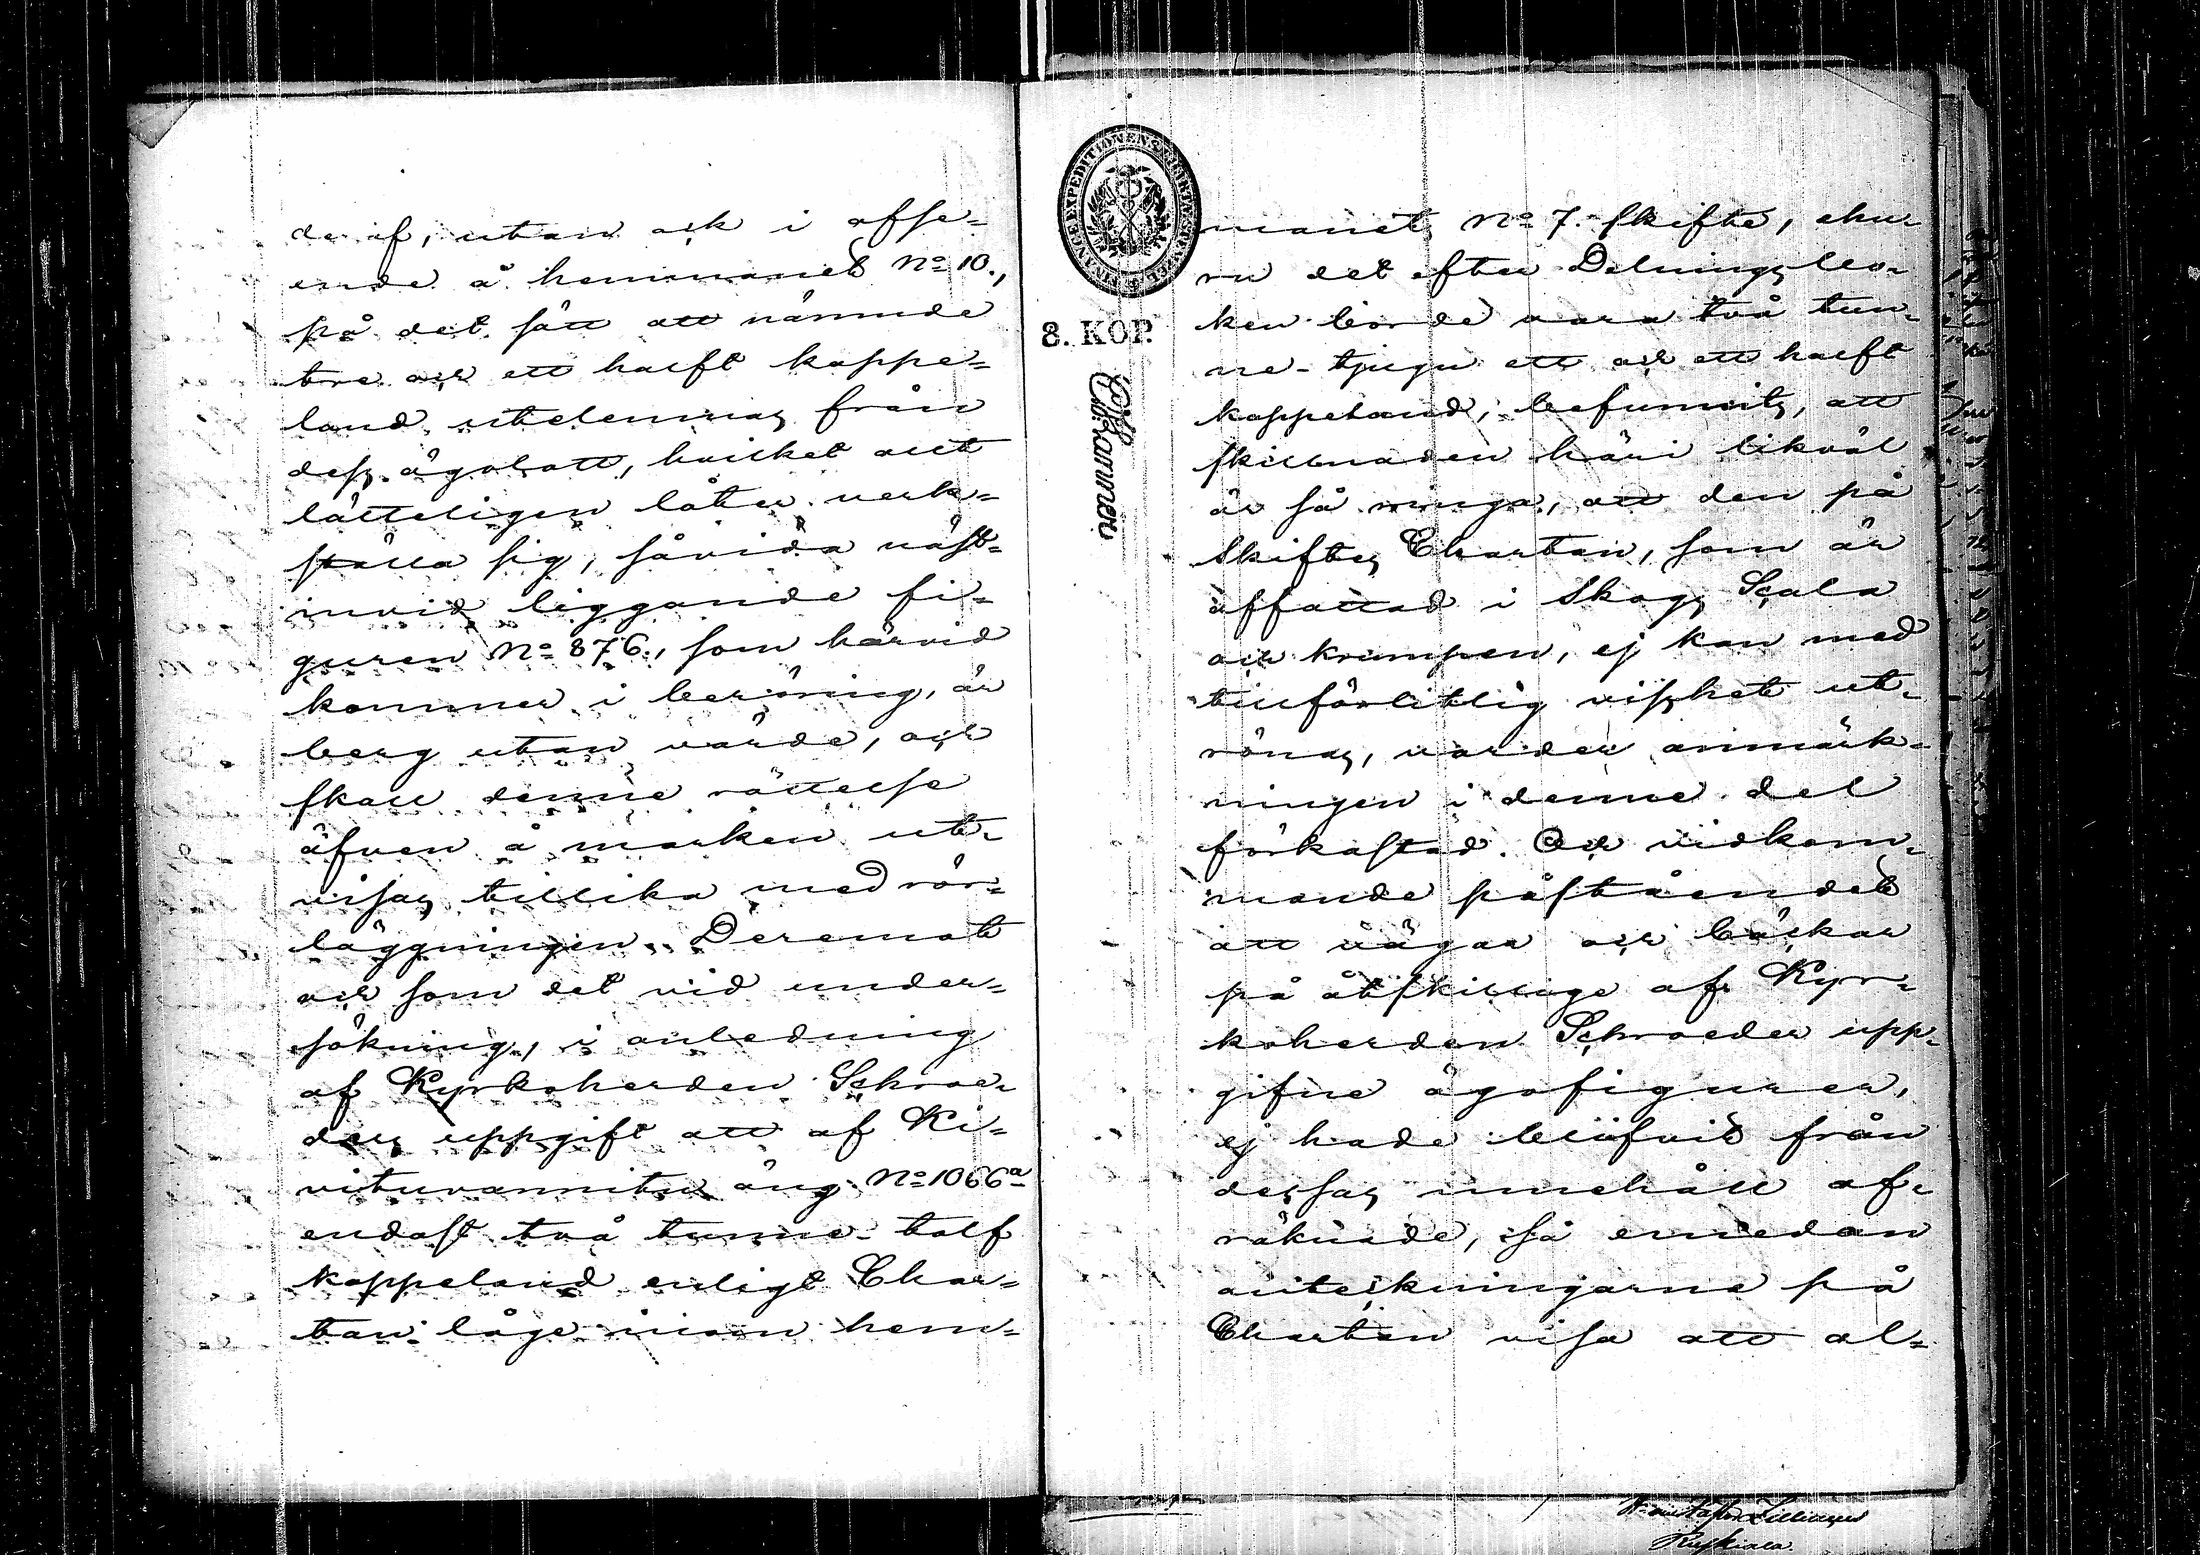 deraf, utan ock i afse-
ende å hemmanet No 10.,
på det sätt att nämnde
tre och ett halft kappe-
land utelemnas från
dess ägolott, hvilket allt
lätteligen låter verk-
ställa sig, såvida näst-
invid liggande fi-
guren No 876., som härvid
kommer i beröring, är
berg utan värde, och
skall denne rättelse
äfven å marken ut-
visas tillika med rör-
läggningen. Deremot
och som det vid under-
sökning, i anledning
af Kyrkoherden Schroe-
ders uppgift att af Ki-
vituvannitu äng No 1066a
endast två tunne- tolf
kappeland enligt Char-
tan låge inom hem-
FINANCE EXPEDITIONENS CHARTA
8. KOP.
manets No 7. skifte, ehu-
ru det efter Delnings bo-
ken borde vara två tun-
ne- tjugu ett och ett halft
kappeland, befunnits, att
skillnaden häri likväl
är så ringa, att den på
Skiftes Chartan, som är
affattad i Skogs Scala
och krumpen, ej kan med
tillförlitlig visshet ut-
rönas, varder anmärk-
ningen i denne del
förkastad. Och vidkom-
mande påståendet
att vägar och bäckar
på åtskillige af Kyr-
koherden Schroeder upp-
gifne ägofigurer,
ej hade blifvit från
dessas innehåll af-
räknade, så emedan
anteckningarne på
Chartan visa att al-